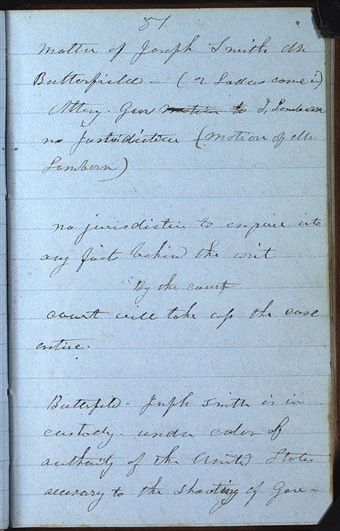 51
matter of Joseph Smith Mr
Butterfield - (2 Ladies come in)
Attery. Gen motion to J, Lamborn
no Jurisdiction (motion of Mr
Lamborn)
no jurisdiction to enquire into
any fact behind the writ
By the court
court will take up the case
entire.
Butterfield - Joseph Smith is in
custody - under color of
authority of the United States
accessary to the shooting of Gove-